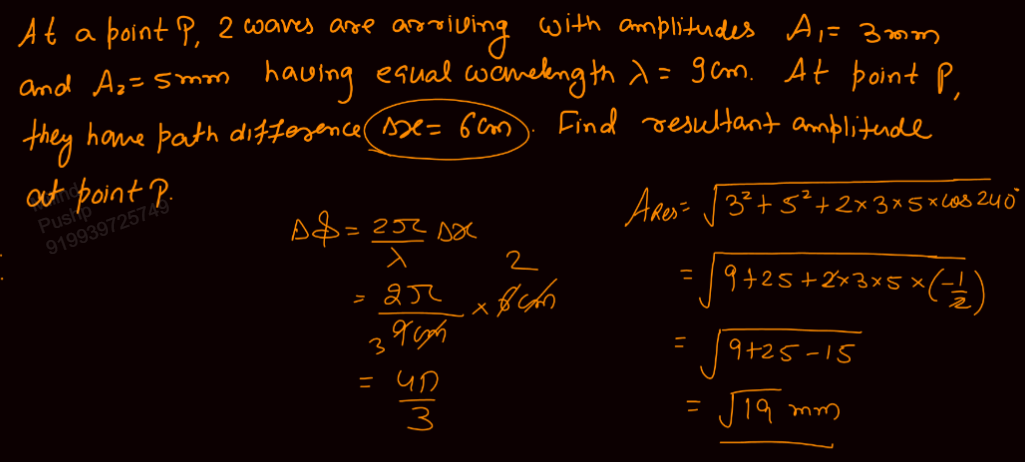 At a point P, 2 waves are arriving with amplitudes A₁ = 3mm
and A₂ = 5mm having equal wavelength λ = 9cm. At point P,
they have path difference Δx = 6cm. Find resultant amplitude
at point P.
Pushp
919939725749
Δϕ = 2π/λ Δx
= 2π/9cm × 6cm
3 2
= 4π/3
A_Res = √(3² + 5² + 2×3×5×cos 240°)
= √(9+25+2×3×5×(-1/2))
= √(9+25-15)
= √19 mm